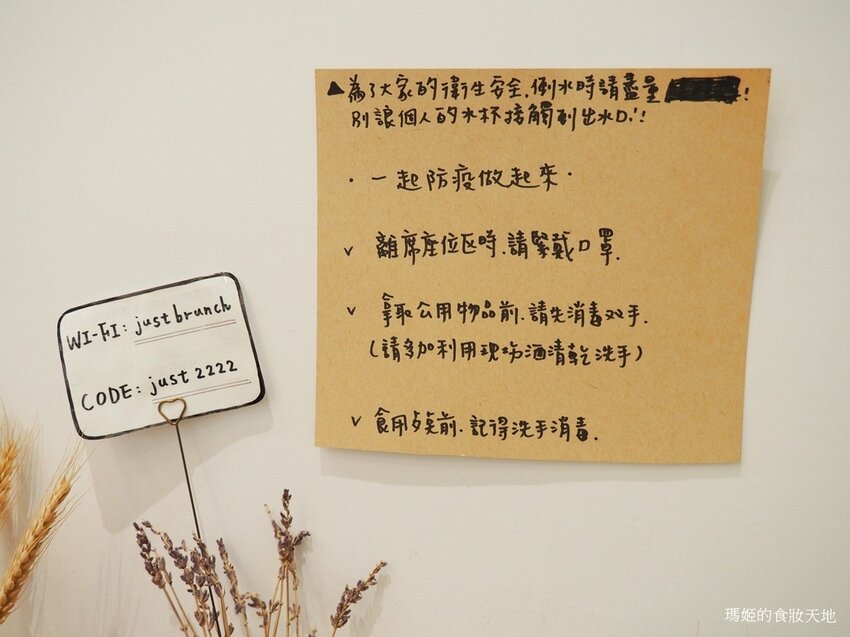 ▲為了大家的衛生安全,倒水時請盡量!
別讓個人的水杯接觸到出水口!!
·一起防疫做起來·
v 離席座位区時,請緊戴口罩.
v 拿取公用物品前.請先消毒双手.
(請多加利用現場酒清乾洗手)
v 食用餐前.記得洗手消毒.
WI-FI: just brunch
CODE: just 2222
瑪姬的食妝天地